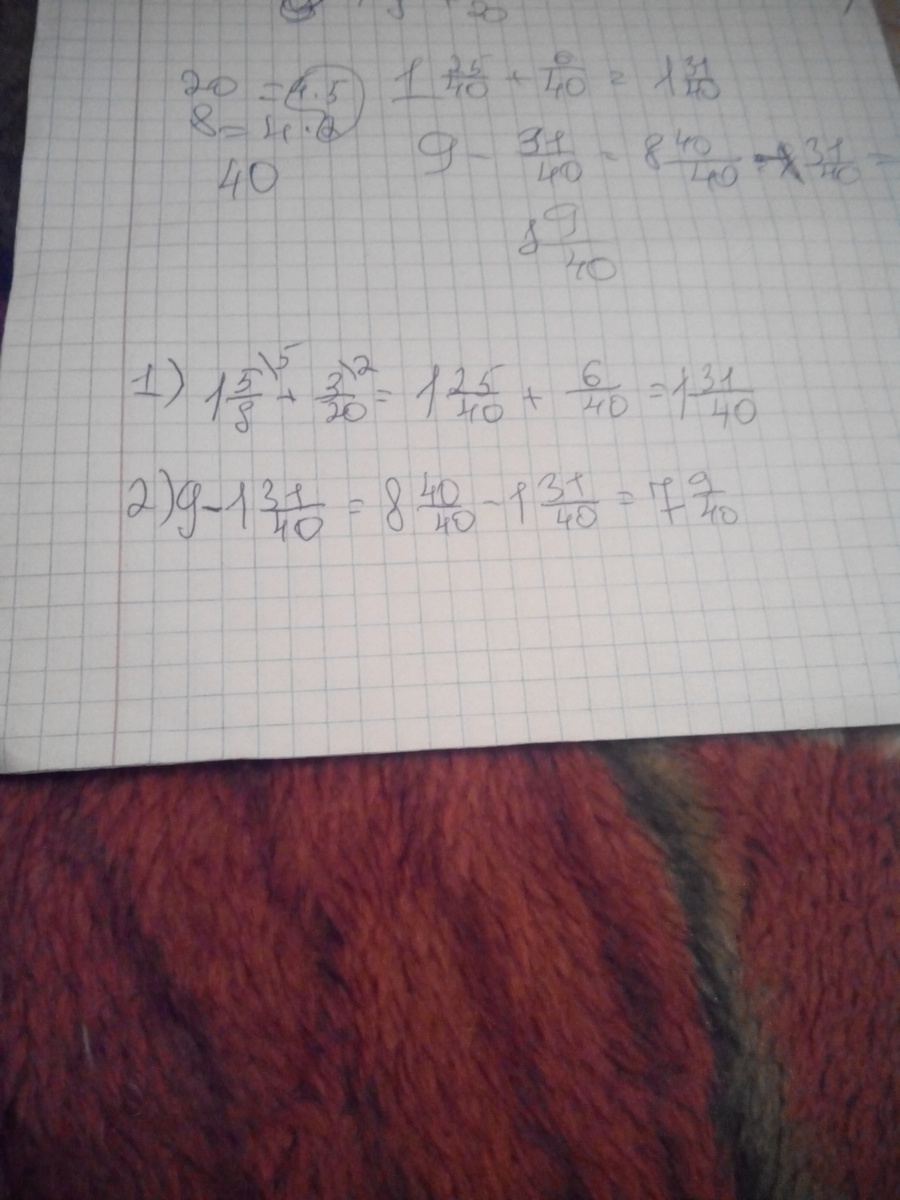 20
20 = 4·5
8 = 4·2
40
1 25/40 + 6/40 = 1 31/40
9 - 31/40 = 8 40/40 - 31/40 =
8 9/40
1) 1 5/8 \5 + 3/20 \2 = 1 25/40 + 6/40 = 1 31/40
2) 9 - 1 31/40 = 8 40/40 - 1 31/40 = 7 9/40